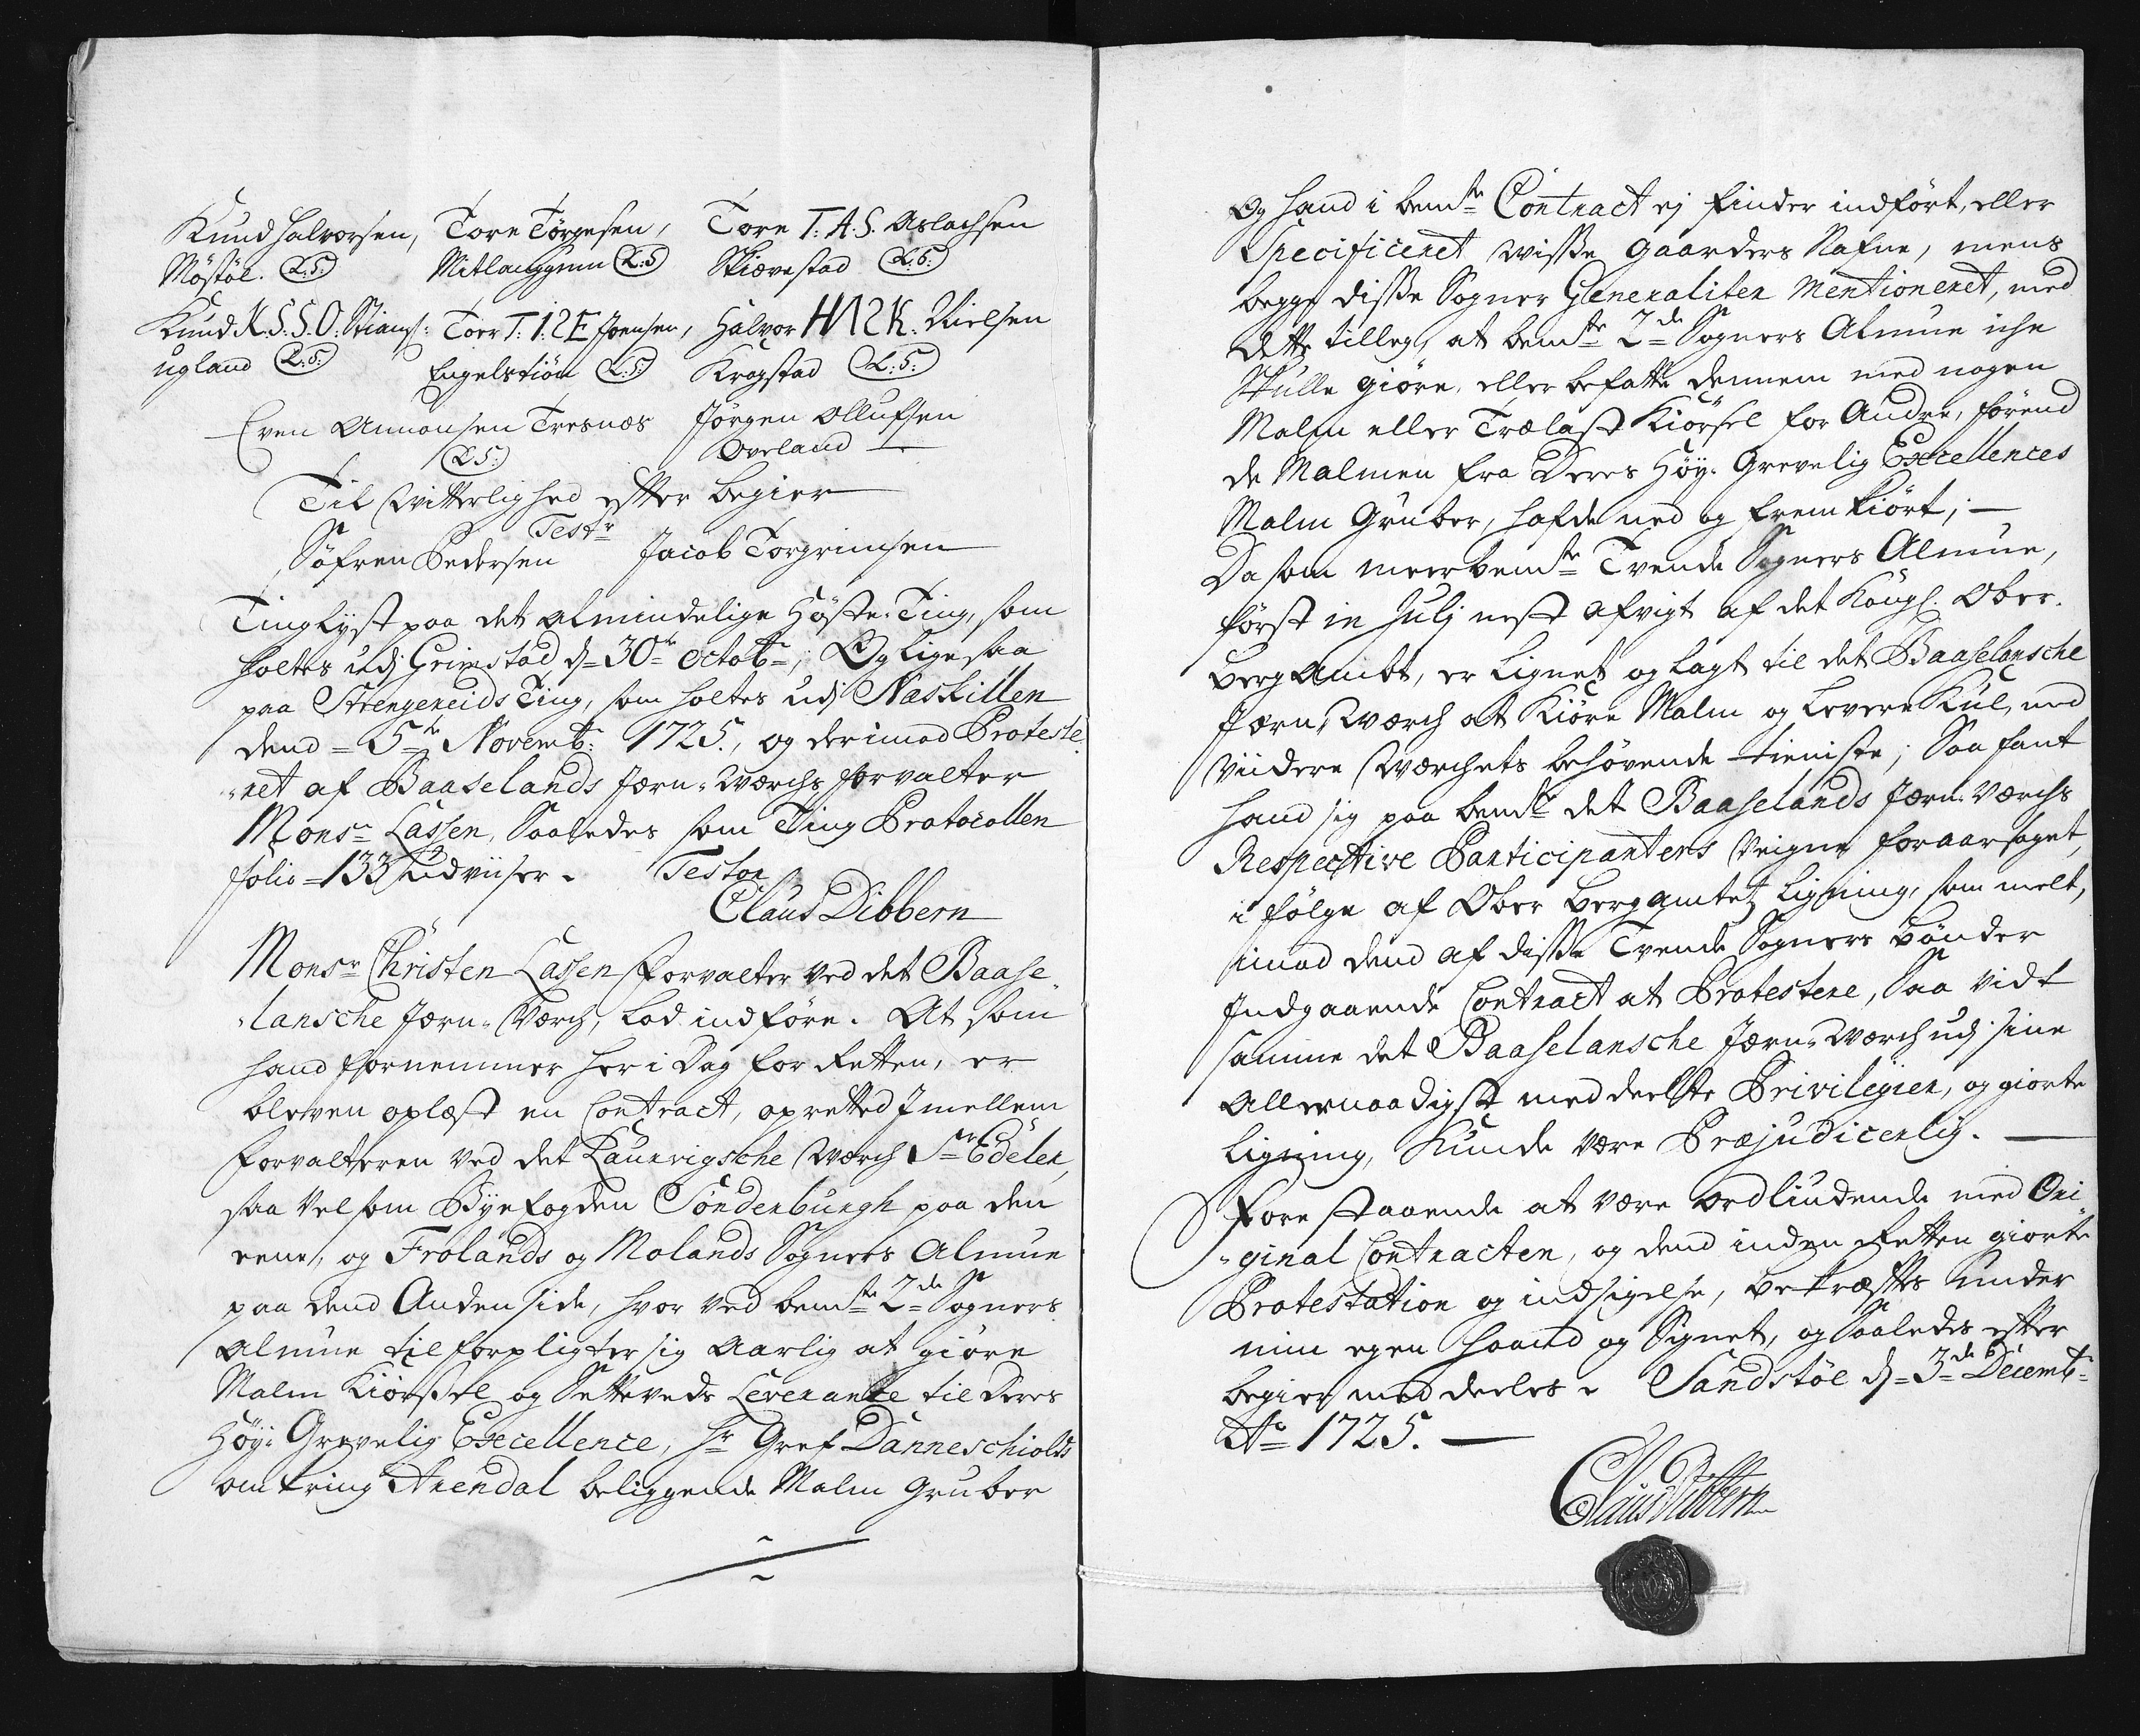 Knud Halvorsen, Tore Törgesen, Tore T: A. S. Aslachsen
Möstöl. L:S: Mitlanggrim L:S Skiævestad L:S:
Knud K. S. S. O: Stiansß: Toer T: I: S E Joensen, Halvor H N S K. Nielsen
Ugland L:S: Engelstiön L:S: Krogstad L:S:
Even Aanonsen Tresnæs Jörgen Ollufsen
L:S: Overland —
Til Vitterlighed efter begier
Testr
Söfren Pedersen Jacob Torgrimsen
Tinglyst paa det almindelige Höste-Ting, som
holtes udj Grimstad d= 30te Octobr; Og ligesaa
paa Strengereids Ting, som holtes udj Naskillen
dend= 5te Novembr: 1725., og derimod Proteste-
„ret af Baaselands Jern-Wærchs forvalter
Monsr Lassen, Saaledes som Ting Protocollen
folio= 133 udviiser. Testor
Claus Dibbern
Monsr Christen Lassen forvalter ved det Baase-
„lansche Jern-Værch, lod indföre. At som
hand fornemmer her i Dag for Retten, er
bleven oplæst en Contract, opretted Imellem
forvalteren ved det Laurvigsche Wærch Sr Edeler,
saa vel som Byefogden Sönderburgh paa den
eene, og Frolands og Molands Sogners Almue
paa dend Anden side, hvor ved bemte 2de Sogners
Almue tilforpligter sig Aarlig at giöre
Malm Kiörssel og Setteveds Leverantze til Deres
Höy: Grevelig Excellence, Hr Gref Danneschiolds
omkring Arendal beliggende Malm Gruber
Og hand i bemte Contract ej finder indfört, eller
Specificeret wisse gaarders Nafne, mens
begge disse Sogner Generaliter Mentioneret, med
dette tilleg, at bemte 2de Sogners Almue iche
Skulle giöre, eller befatte dennem med nogen
Malm eller Trælast Kiörsel for Andre, förend
de Malmen fra Deres Höy: Grevelig Excellences
Malm Gruber, hafde ned og fremkiört; —
Da som meerbemte Tvende Sogners Almue,
först in Julj nest afvigt af det Kongl. Ober-
bergAmbt, er lignet og lagt til det Baaselansche
Jern-Wærch at Kiöre Malm og Levere Kul, med
Viidere Wærchets behövende tieniste; Saa fant
hand sig paa bemte det Baaselands Jern-Værchs
Respective Participanters Veigne foraarsaget,
i fölge af Ober bergamtetz Ligning, som melt,
imod dend af disse Tvende Sogners bönder
Indgaaende Contract at Protestere, Saa vidt
samme det Baaselansche Jern-Wærch udj sine
Allernaadigst meddeelte Privilegier, og giorte
ligning, Kunde være Præjudicerlig. —
Forestaaende at være ordliudende med Ori-
„ginal Contracten, og dend inden Retten giorte
Protestation og indsigelse, bekræftes under
min egen Haand og Signet, og Saaledes efter
begier meddeeles. Sandstöe d= 3de Decembr
Ao 1725. —
Claus Dibbern